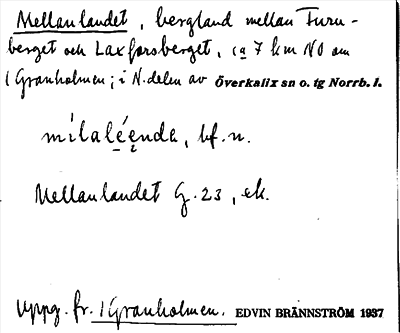 Mellanlandet, bergland mellan Furu-
berget och Laxforsberget, ca 7 km NO om
1 Granholmen; i N.delen av Överkalix sn o. tg Norrb. l.
mìlaléẹndɐ, bf. n.
Mellanlandet G. 23, ek.
Uppg. fr. 1 Granholmen. EDVIN BRÄNNSTRÖM 1937